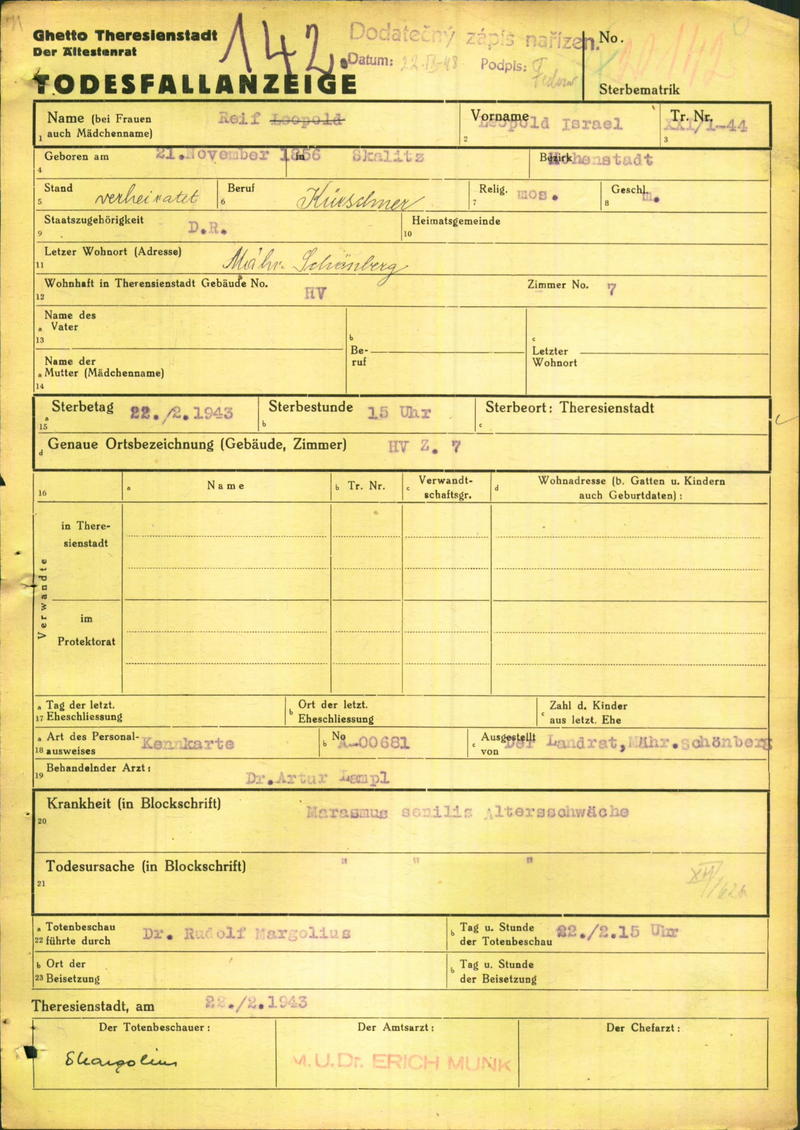 Ghetto Theresienstadt
Der Ältestenrat
142
Dodatečný zápis nařízen.
Datum: 22.IV.48 Podpis:
No. 142
TODESFALLANZEIGE
Sterbematrik
Name (bei Frauen auch Mädchenname) Reif Leopold
1
Vorname Leopold Israel
2
Tr. Nr. XXI/1-44
3
Geboren am 21.November 1856 in Skalitz
4
Bezirk Hohenstadt
Stand verheiratet
5
Beruf Kürschner
6
Relig. mos.
7
Geschl. m.
8
Staatszugehörigkeit D.R.
9
Heimatsgemeinde
10
Letzer Wohnort (Adresse) Mähr. Schönberg
11
Wohnhaft in Therensienstadt Gebäude No. HV
12
Zimmer No. 7
Name des
a Vater
13
b Be-
ruf
c Letzter
Wohnort
Name der
a Mutter (Mädchenname)
14
Sterbetag 22./2.1943
a
15
Sterbestunde 15 Uhr
b
Sterbeort: Theresienstadt
c
d Genaue Ortsbezeichnung (Gebäude, Zimmer) HV Z. 7
16
a Name
b Tr. Nr.
c Verwandt-
schaftsgr.
d Wohnadresse (b. Gatten u. Kindern
auch Geburtdaten) :
Verwandte
in There-
sienstadt
im
Protektorat
a Tag der letzt.
17 Eheschliessung
b Ort der letzt.
Eheschliessung
c Zahl d. Kinder
aus letzt. Ehe
a Art des Personal-
18 ausweises Kennkarte
b No A-00681
c Ausgestellt
von Der Landrat, Mähr.schönberg
Behandelnder Arzt: Dr.Artur Lampl
19
Krankheit (in Blockschrift) Marasmus senilis Altersschwäche
20
Todesursache (in Blockschrift) " " "
21
a Totenbeschau
22 führte durch Dr. Rudolf Margolius
b Tag u. Stunde
der Totenbeschau 22./2.15 Uhr
b Ort der
23 Beisetzung
b Tag u. Stunde
der Beisetzung
Theresienstadt, am 22./2.1943
Der Totenbeschauer:
Der Amtsarzt:
Der Chefarzt:
M.U.Dr. ERICH MUNK